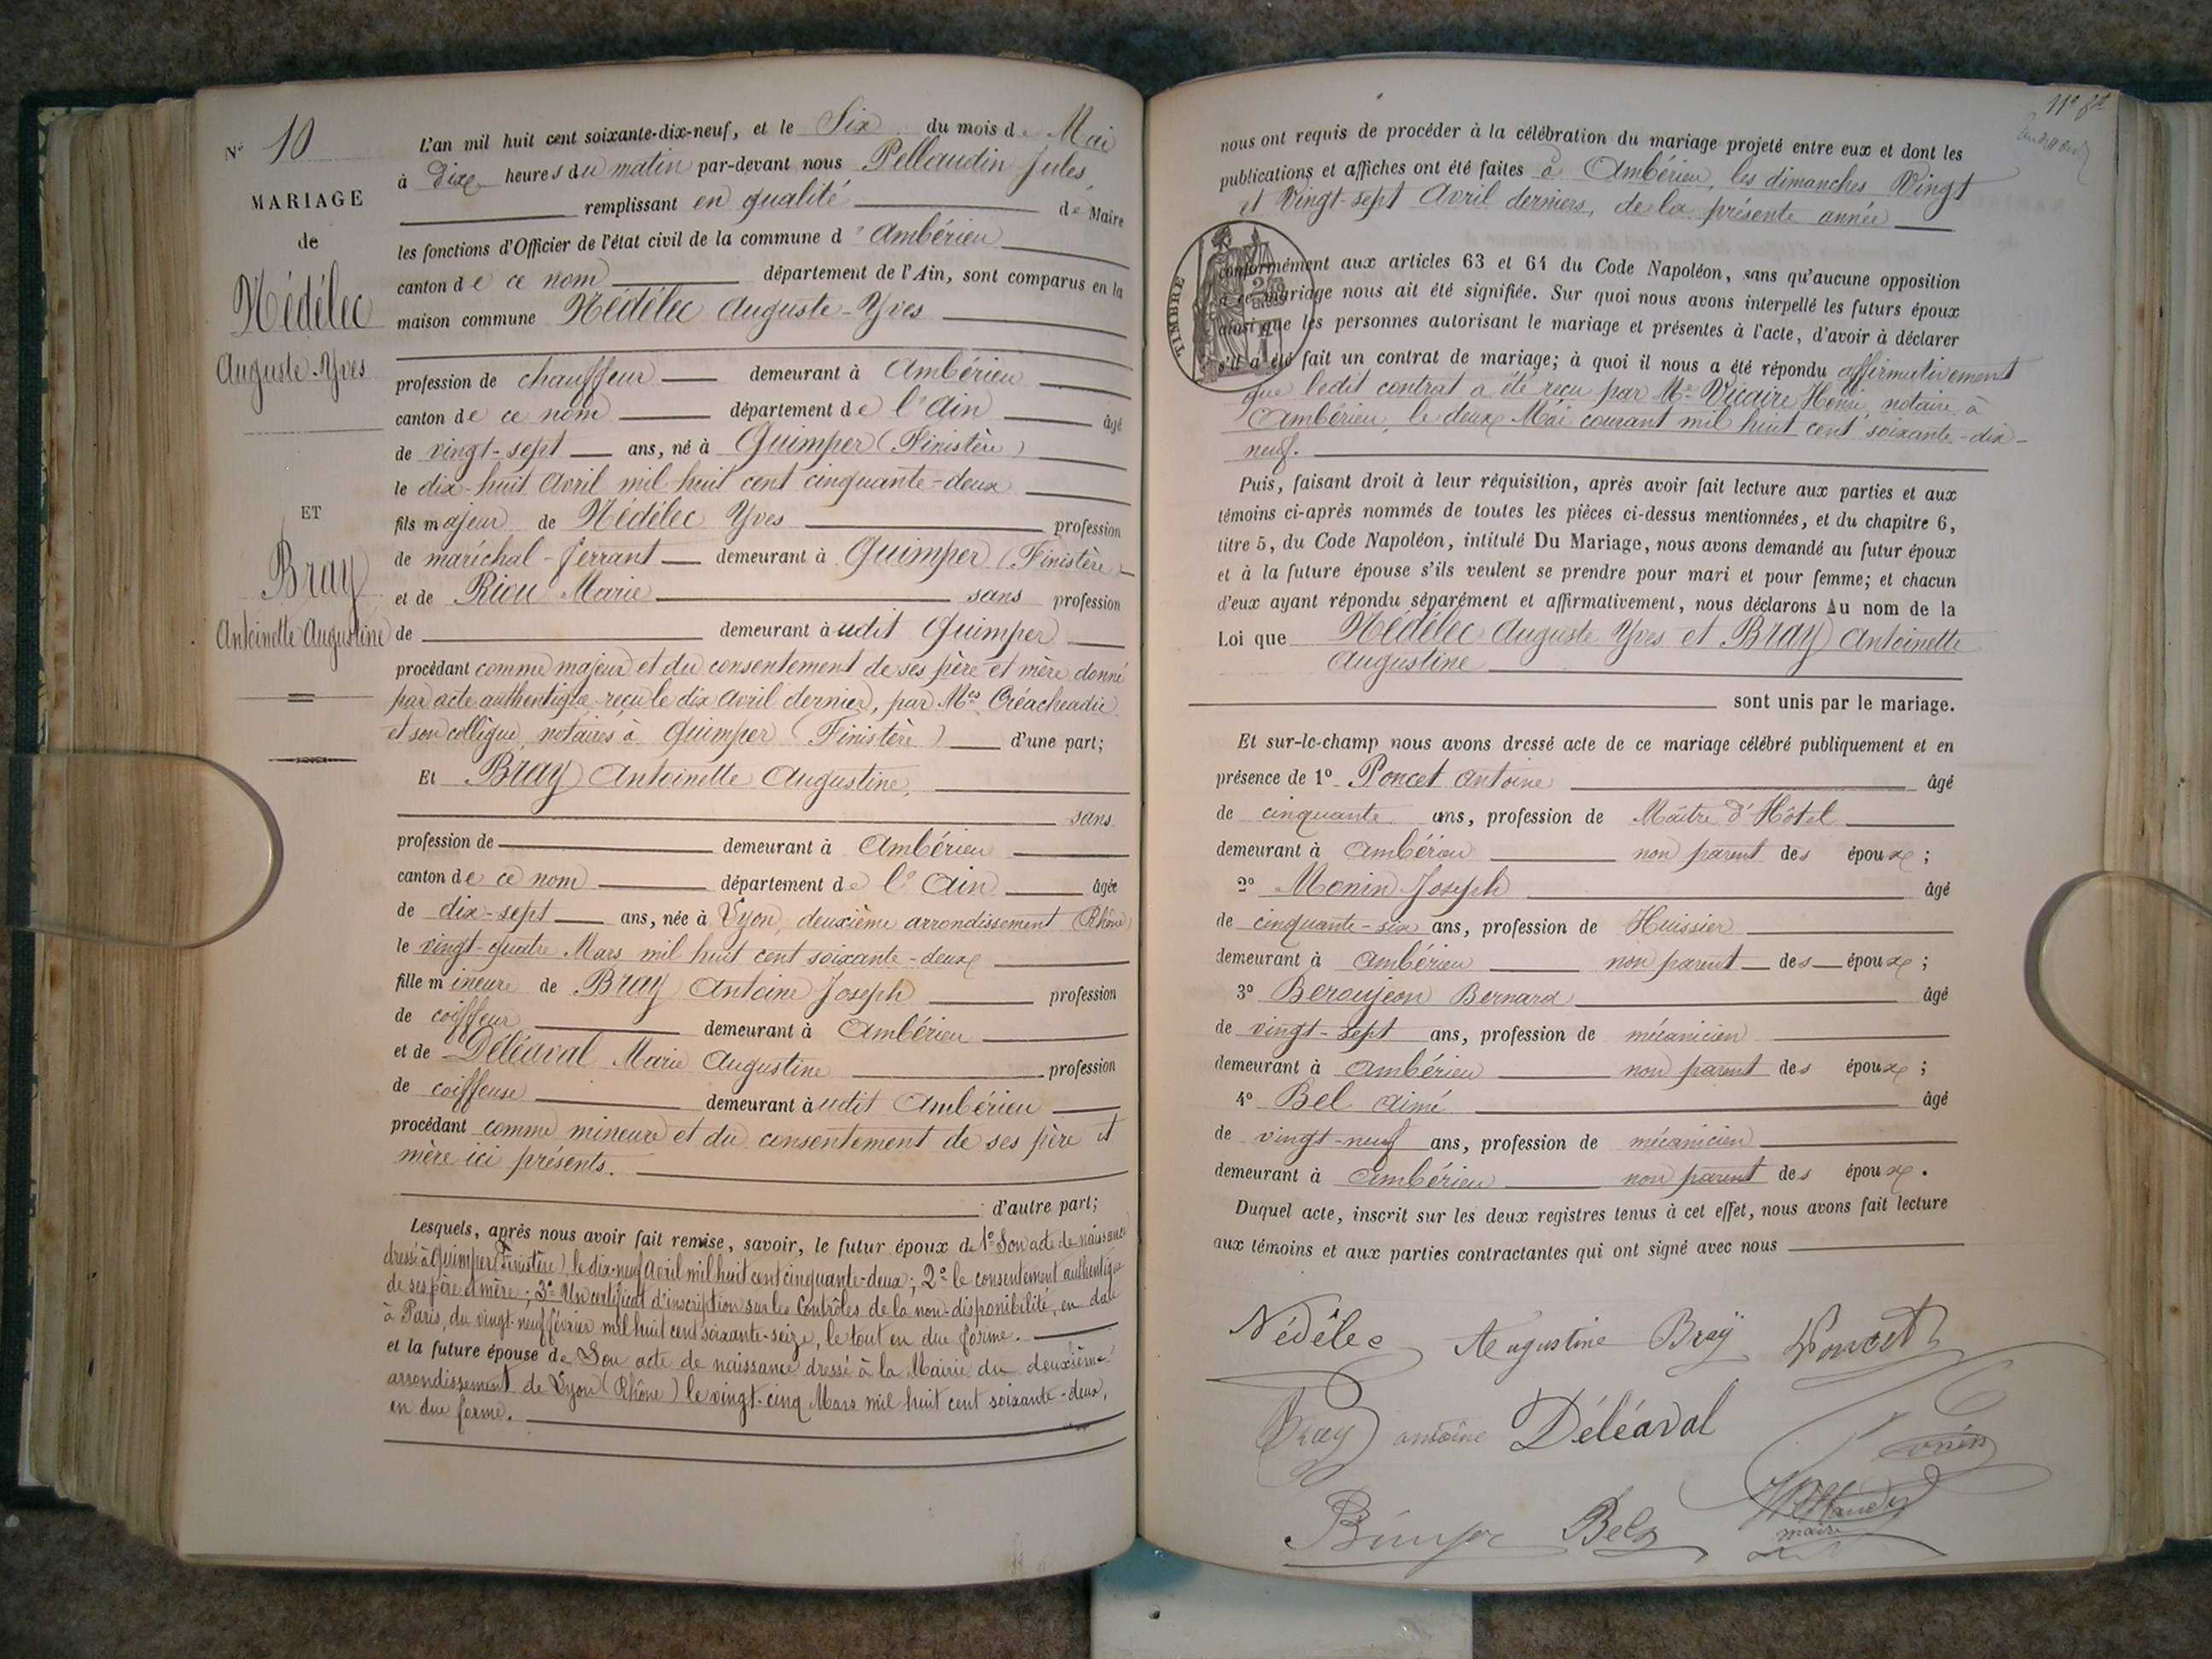 N° 10
MARIAGE
de
Nédélec
Auguste-Yves
ET
Bray
Antoinette Augustine
L'an mil huit cent soixante-dix-neuf, et le Six du mois de Mai
à Dix heures du matin par-devant nous Pellaudin Jules,
remplissant en qualité de Maire
les fonctions d'Officier de l'état civil de la commune d'Ambérieu
canton de ce nom département de l'Ain, sont comparus en la
maison commune Nédélec Auguste-Yves
profession de chauffeur demeurant à Ambérieu
canton de ce nom département de l'Ain âgé
de vingt-sept ans, né à Quimper (Finistère)
le dix-huit Avril mil huit cent cinquante-deux
fils majeur de Nédélec Yves profession
de maréchal-ferrant demeurant à Quimper (Finistère)
et de Riou Marie sans profession
de demeurant audit Quimper
procédant comme majeur et du consentement de ses père et mère donné
par acte authentique reçu le dix Avril dernier, par Mes Créacheadic
et son collègue, notaires à Quimper (Finistère) d'une part;
Et Bray Antoinette Augustine,
sans
profession de demeurant à Ambérieu
canton de ce nom département de l'Ain âgée
de dix-sept ans, née à Lyon, deuxième arrondissement (Rhône)
le vingt-quatre Mars mil huit cent soixante-deux
fille mineure de Bray Antoine Joseph profession
de coiffeur demeurant à Ambérieu
et de Déléaval Marie Augustine profession
de coiffeuse demeurant audit Ambérieu
procédant comme mineure et du consentement de ses père et
mère ici présents.
; d'autre part;
Lesquels, après nous avoir fait remise, savoir, le futur époux de 1° Son acte de naissance
dressé à Quimper (Finistère), le dix-neuf Avril mil huit cent cinquante-deux; 2° le consentement authentique
de ses père et mère; 3° Un certificat d'inscription sur les Contrôles de la non-disponibilité, en date
à Paris, du vingt-neuf février mil huit cent soixante-seize, le tout en due forme.
et la future épouse de Son acte de naissance dressé à la Mairie du deuxième
arrondissement de Lyon (Rhône) le vingt-cinq Mars mil huit cent soixante-deux,
en due forme.
nous ont requis de procéder à la célébration du mariage projeté entre eux et dont les
publications et affiches ont été faites à Ambérieu, les dimanches Vingt
et Vingt-sept Avril derniers, de la présente année
TIMBRE
conformément aux articles 63 et 64 du Code Napoléon, sans qu'aucune opposition
à ce mariage nous ait été signifiée. Sur quoi nous avons interpellé les futurs époux
ainsi que les personnes autorisant le mariage et présentes à l'acte, d'avoir à déclarer
s'il a été fait un contrat de mariage; à quoi il nous a été répondu affirmativement
que ledit contrat a été reçu par Me Vicaire Henri, notaire à
Ambérieu, le deux Mai courant mil huit cent soixante-dix-
neuf.
Puis, faisant droit à leur réquisition, après avoir fait lecture aux parties et aux
témoins ci-après nommés de toutes les pièces ci-dessus mentionnées, et du chapitre 6,
titre 5, du Code Napoléon, intitulé Du Mariage, nous avons demandé au futur époux
et à la future épouse s'ils veulent se prendre pour mari et pour femme; et chacun
d'eux ayant répondu séparément et affirmativement, nous déclarons Au nom de la
Loi que Nédélec Auguste Yves et Bray Antoinette
Augustine
sont unis par le mariage.
Et sur-le-champ nous avons dressé acte de ce mariage célébré publiquement et en
présence de 1° Poncet Antoine âgé
de cinquante ans, profession de Maître d'Hôtel
demeurant à Ambérieu non parent des époux;
2° Monin Joseph âgé
de cinquante-six ans, profession de Huissier
demeurant à Ambérieu non parent des époux;
3° Beroujeon Bernard âgé
de vingt-sept ans, profession de mécanicien
demeurant à Ambérieu non parent des époux;
4° Bel Aimé âgé
de vingt-neuf ans, profession de mécanicien
demeurant à Ambérieu non parent des époux.
Duquel acte, inscrit sur les deux registres tenus à cet effet, nous avons fait lecture
aux témoins et aux parties contractantes qui ont signé avec nous
Nédélec Augustine Bray Poncet
Bray antoine Déléaval
Monin
Bel
maire